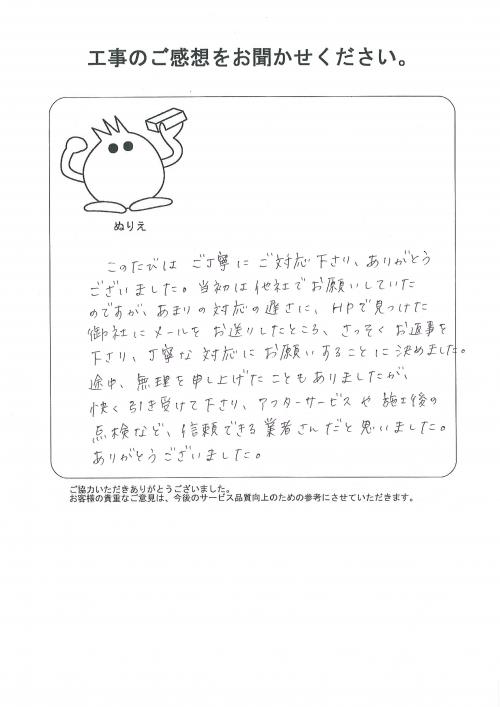 工事のご感想をお聞かせください。
ぬりえ
このたびは ご丁寧に ご対応下さり、ありがとう
ございました。当初は他社でお願いしていた
のですが、あまりの対応の遅さに、HPで見つけた
御社にメールをお送りしたところ、さっそくお返事を
下さり、丁寧な対応にお願いすることに決めました。
途中、無理を申し上げたこともありましたが、
快く引き受けて下さり、アフターサービスや施工後の
点検など、信頼できる業者さんだと思いました。
ありがとうございました。
ご協力いただきありがとうございました。
お客様の貴重なご意見は、今後のサービス品質向上のための参考にさせていただきます。